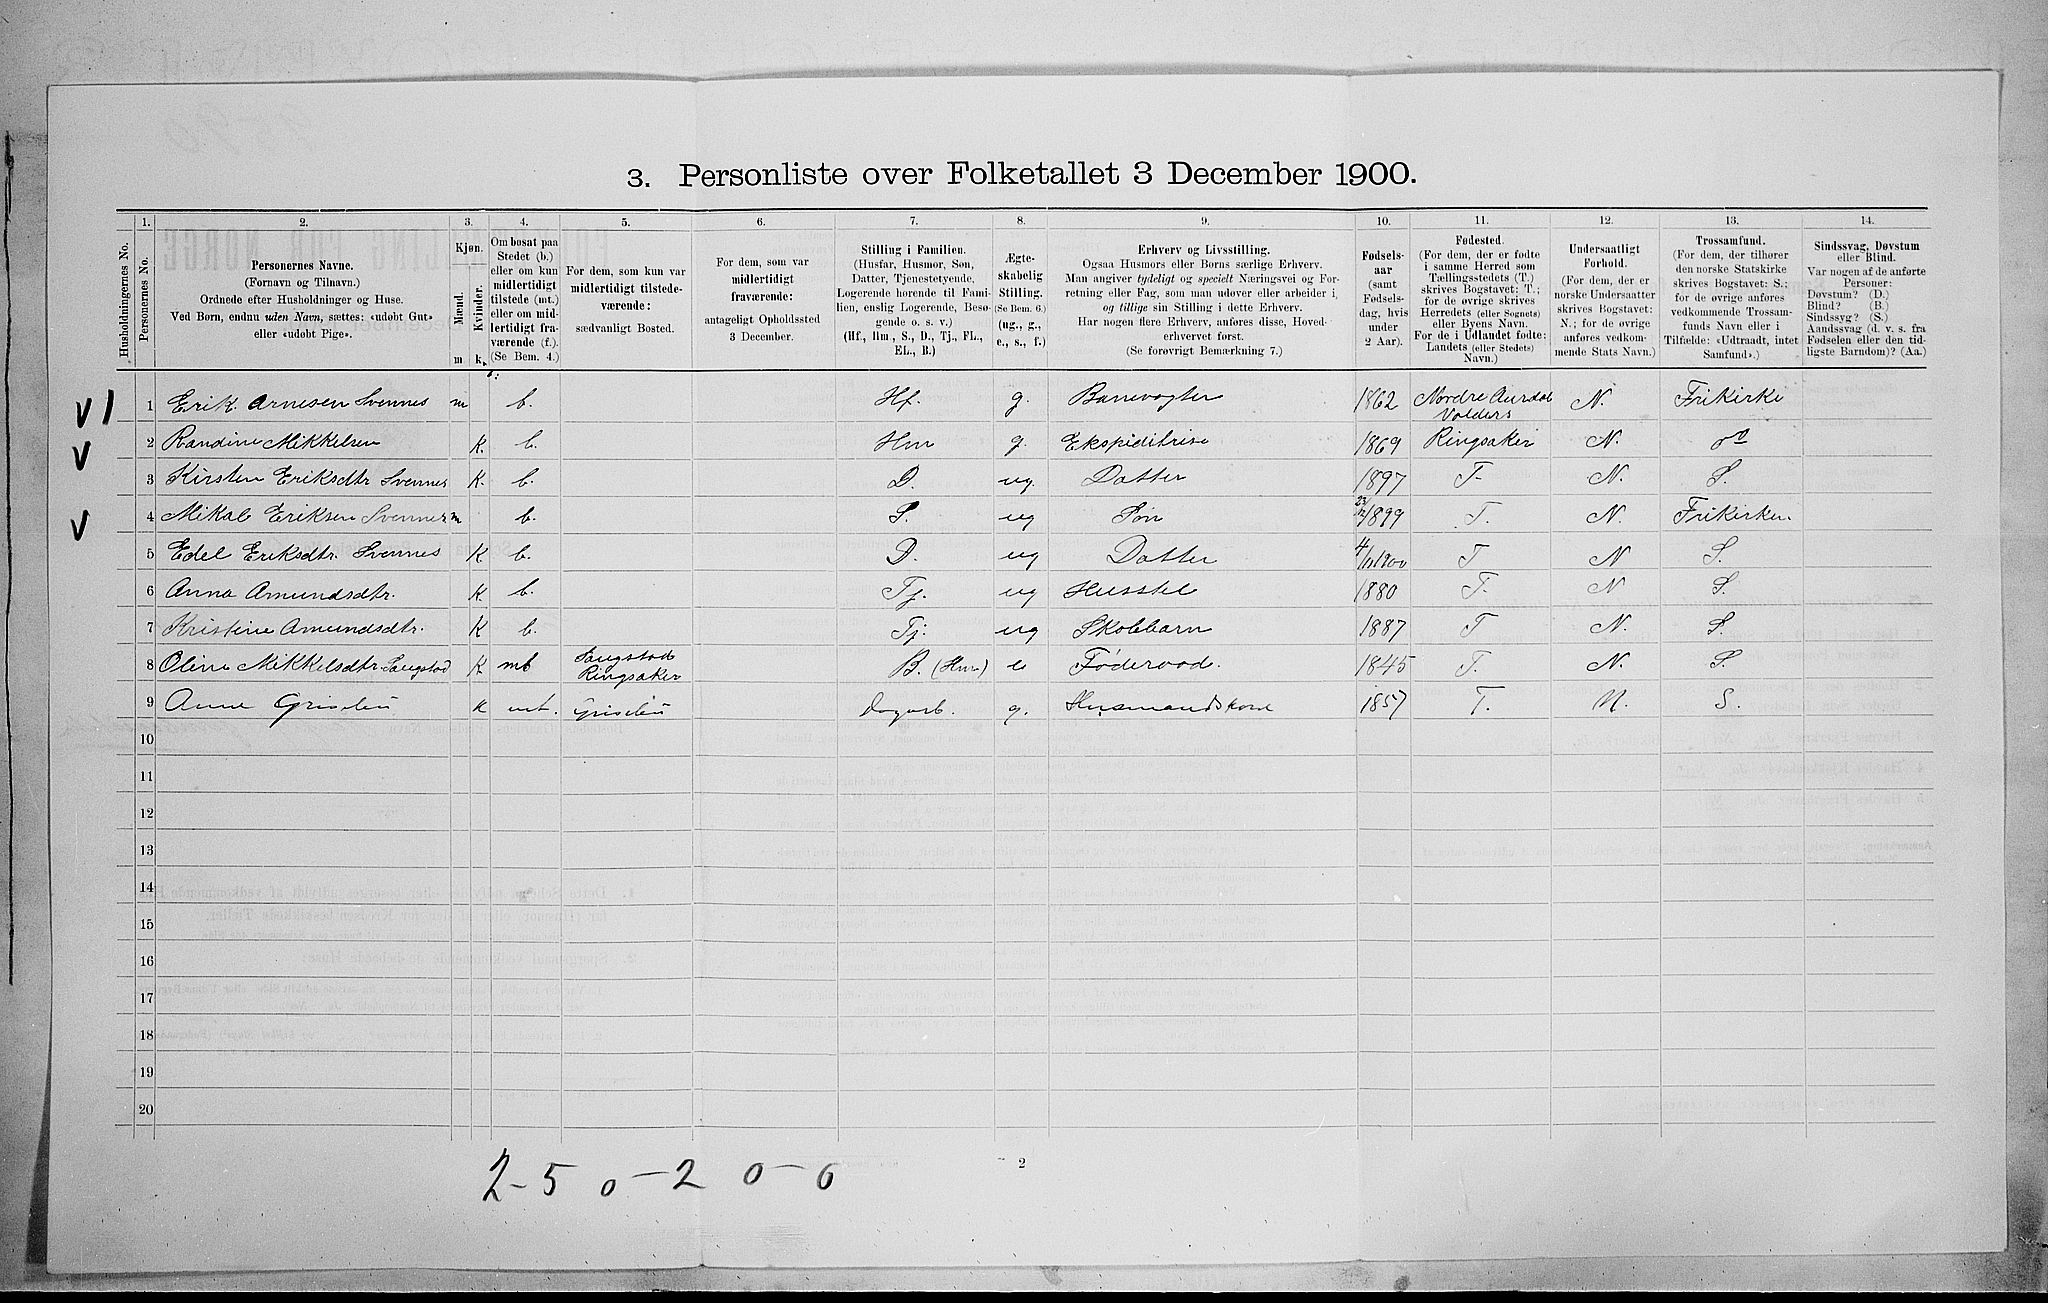 3. Personliste over Folketallet 3 December 1900.
Husholdningernes No.
1. Personernes No.
2. Personernes Navne.
(Fornavn og Tilnavn.)
Ordnede efter Husholdninger og Huse.
Ved Børn, endnu uden Navn, sættes: «udøbt Gut»
eller «udøbt Pige».
3. Kjøn.
Mænd. Kvinder.
m k.
4. Om bosat paa
Stedet (b.)
eller om kun
midlertidigt
tilstede (mt.)
eller om mid-
lertidigt fra-
værende (f.).
(Se Bem. 4.)
5. For dem, som kun var
midlertidigt tilstede-
værende:
sædvanligt Bosted.
6. For dem, som var
midlertidigt
fraværende:
antageligt Opholdssted
3 December.
7. Stilling i Familien.
(Husfar, Husmor, Søn,
Datter, Tjenestetyende,
Logerende hørende til Fami-
lien, enslig Logerende, Besø-
gende o. s. v.)
(Hf., Hm, S., D., Tj., FL.,
EL., B.)
8. Ægte-
skabelig
Stilling.
(Se Bem. 6.)
(ug., g.,
e., s., f.)
9. Erhverv og Livsstilling.
Ogsaa Husmors eller Børns særlige Erhverv.
Man angiver tydeligt og specielt Næringsvei og For-
retning eller Fag, som man udøver eller arbeider i,
og tillige sin Stilling i dette Erhverv.
Har nogen flere Erhverv, anføres disse, Hoved-
erhvervet først.
(Se forøvrigt Bemærkning 7.)
10. Fødsels-
aar
(samt
Fødsels-
dag, hvis
under
2 Aar).
11. Fødested.
(For dem, der er fødte
i samme Herred som
Tællingsstedets (T.)
skrives Bogstavet: T.;
for de øvrige skrives
Herredets (eller Sognets)
eller Byens Navn.
For de i Udlandet fødte:
Landets (eller Stedets)
Navn.)
12. Undersaatligt
Forhold.
(For dem, der er
norske Undersaatter
skrives Bogstavet:
N.; for de øvrige
anføres vedkom-
mende Stats Navn.)
13. Trossamfund.
(For dem, der tilhører
den norske Statskirke
skrives Bogstavet: S.;
for de øvrige anføres
vedkommende Trossam-
funds Navn eller i
Tilfælde: «Udtraadt, intet
Samfund».)
14. Sindssvag, Døvstum
eller Blind.
Var nogen af de anførte
Personer:
Døvstum? (D.)
Blind? (B.)
Sindssyg? (S.)
Aandssvag (d. v. s. fra
Fødselen eller den tid-
ligste Barndom)? (Aa.)
V 1 1 Erik Arnesen Svennes m b. Hf. g. Banevogter 1862 Nordre Aurdal Valders N. Frikirke
V 2 Randine Mikkelsen K. b. Hm g. Ekspeditrise 1869 Ringsaker N.
3 Kirsten Eriksdtr Svennes K. b. D. ug. Datter 1897 T. N. S.
V 4 Mikal Eriksen Svennes m b. S. ug Søn 1899 T. N. Frikirken
5 Edel Eriksdtr. Svennes K b. D. ug Datter 4/11 1900 T N S.
6 Anna Amundsdtr. K b. Tj. ug Husstel 1880 T. N S.
7 Kristine Amundsdtr. K b. Tj. ug Skolebarn 1887 T N. S.
8 Oline Mikkelsdtr. Saugstad K mt Saugstad Ringsaker B. (Hm) e Føderaad. 1845 T. N. S.
9 Anne Griselien K mt. Griselien Dagarb. g. Husmandskone 1857 T. N. S.
10
11
12
13
14
15
16
17
18
19
20
2 - 5 0 - 2 0 - 0
2